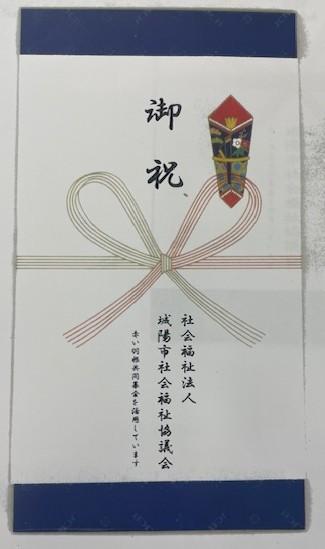 御祝
社会福祉法人
城陽市社会福祉協議会
赤い羽根共同募金を活用しています